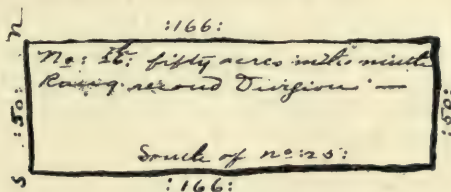 :166:
n
fifty acres in the ninth
Rang second Division —
:50:
:50:
South of no: 25:
S
:166: